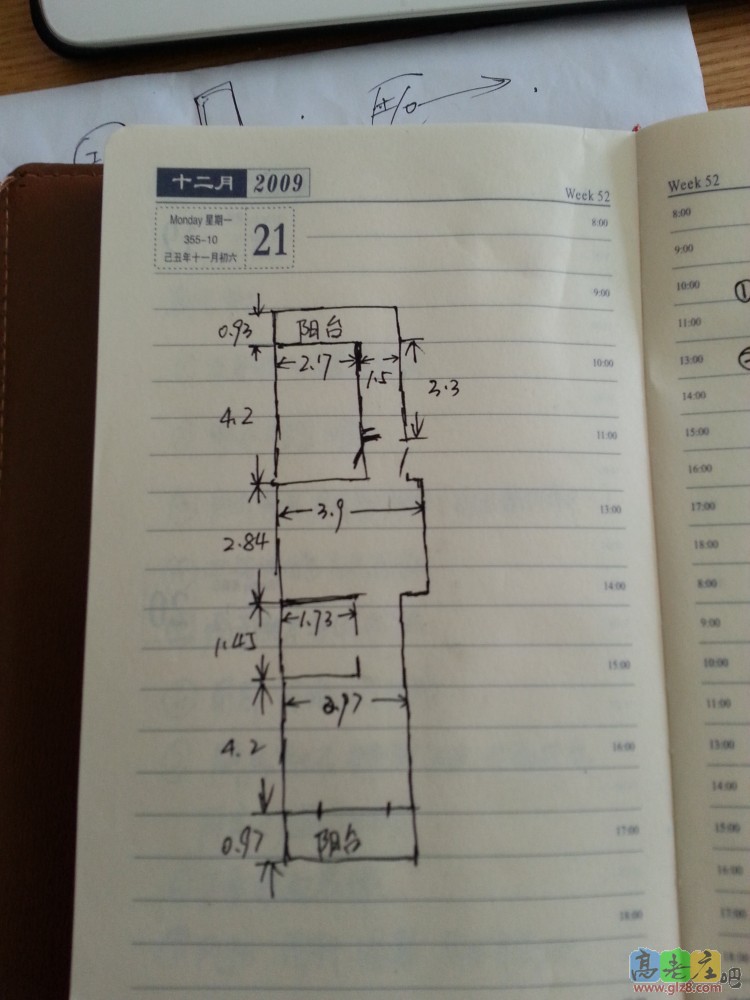 十二月 2009
Week 52
Monday 星期一
355-10
己丑年十一月初六
21
8:00
9:00
10:00
11:00
13:00
14:00
15:00
16:00
17:00
18:00
阳台
0.93
2.17
1.5
3.3
4.2
3.9
2.84
1.73
1.45
2.97
4.2
0.97
阳台
Week 52
8:00
9:00
10:00
①
11:00
13:00
14:00
15:00
16:00
17:00
18:00
8:00
9:00
10:00
11:00
13:00
14:00
15:00
16:00
17:00
18:00
高老庄吧
www.glz8.com